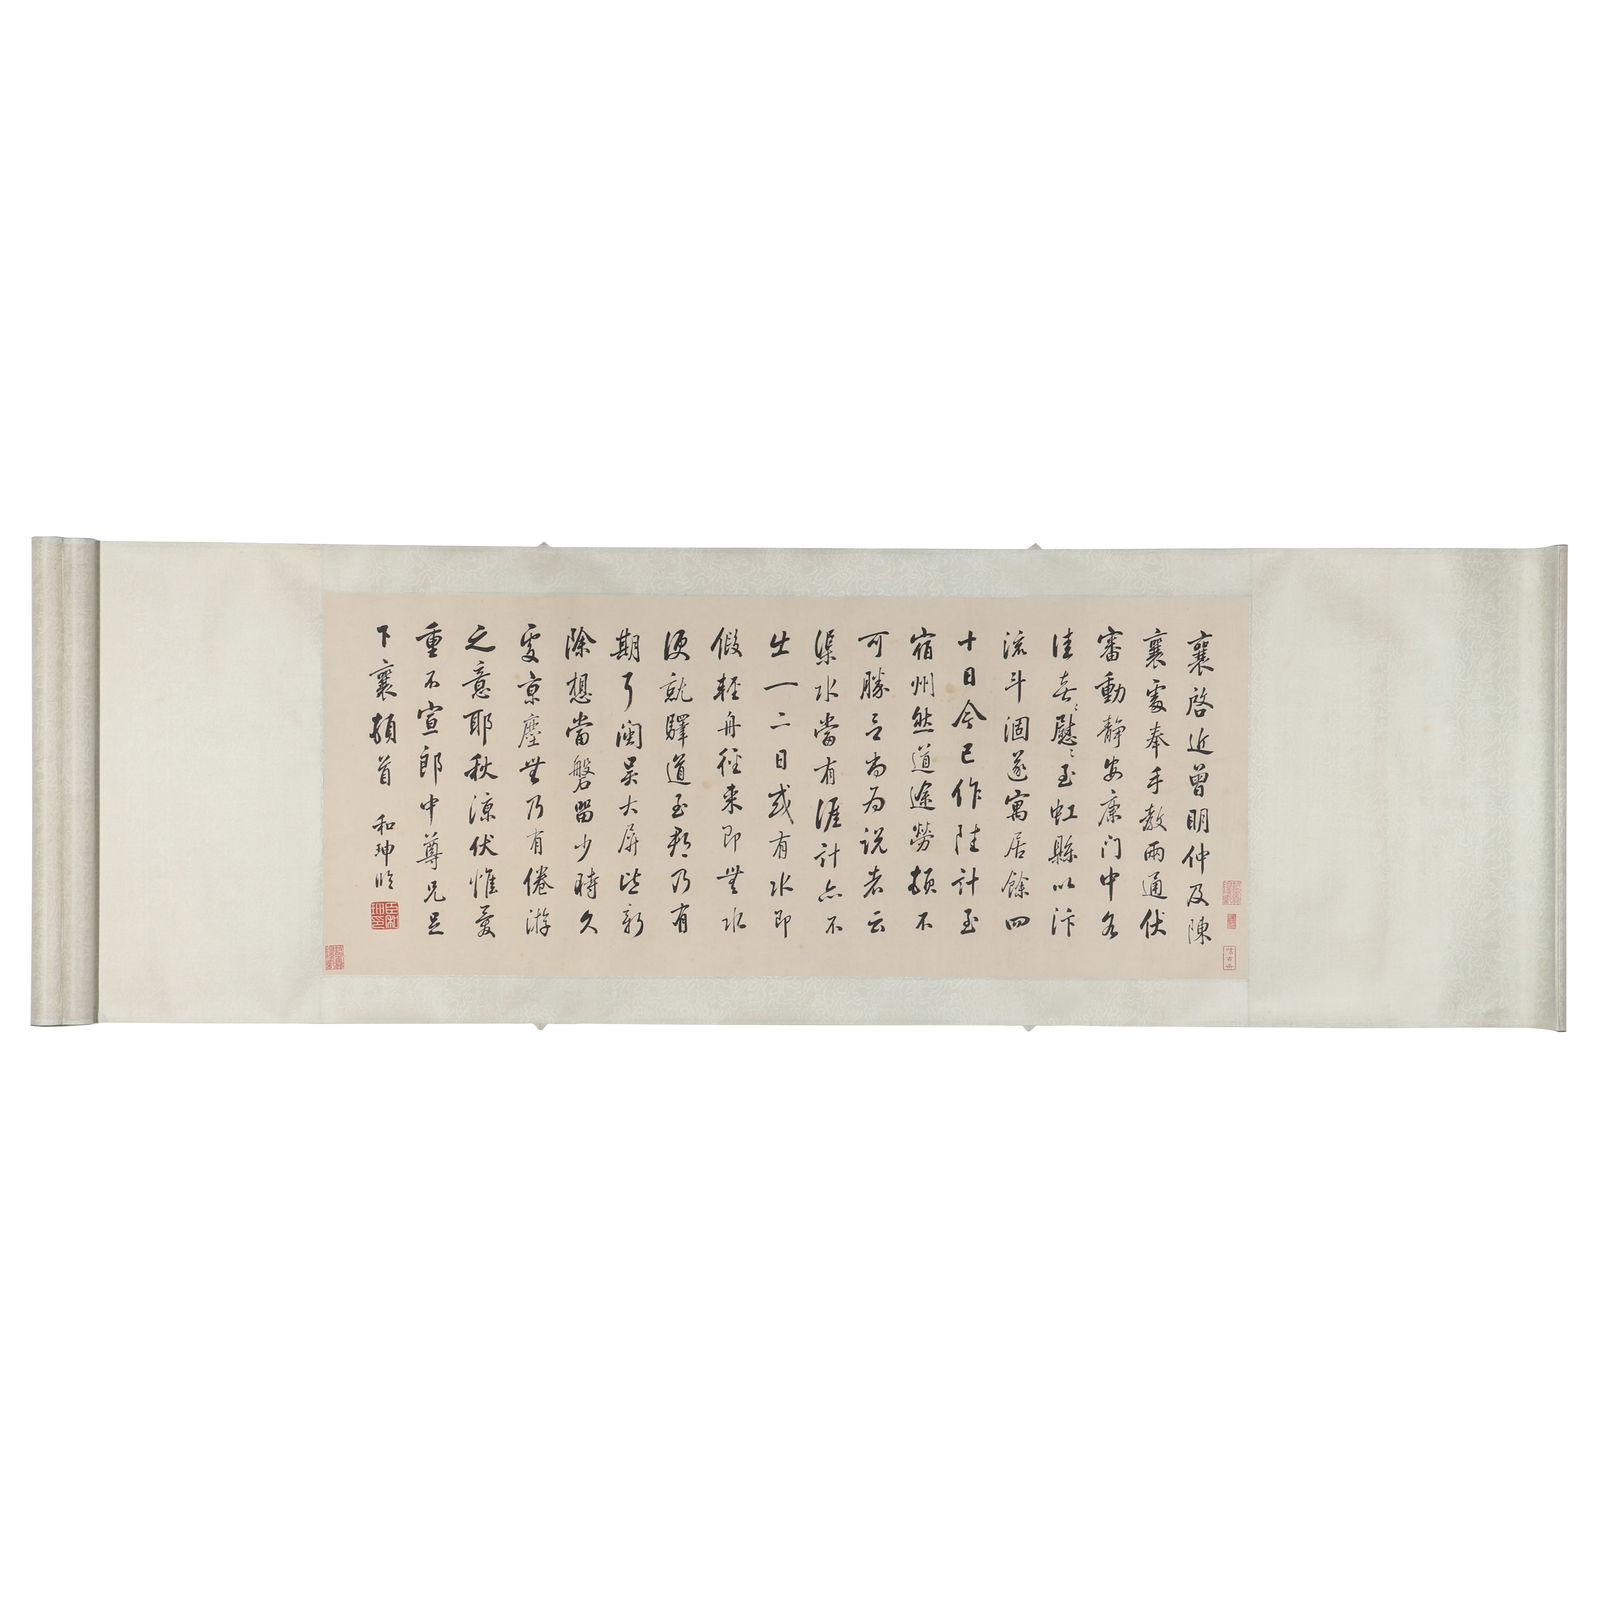 襄啓近曾明仲及陳
襄處奉手教兩通伏
審動靜安康门中各
佳喜〻慰〻至虹縣以汴
流斗涸遂寓居餘四
十日今已作陸計至
宿州然道途勞頓不
可勝言尚為説者云
渠水當有涯計亦不
出一二日或有水即
假輕舟徑来即無水
便就驛道至都乃有
期耳闽吴大屏皆新
除想當磐留少時久
處京塵無乃有倦游
之意耶秋凉伏惟愛
重不宣郎中尊兄足
下襄頓首
和珅臨